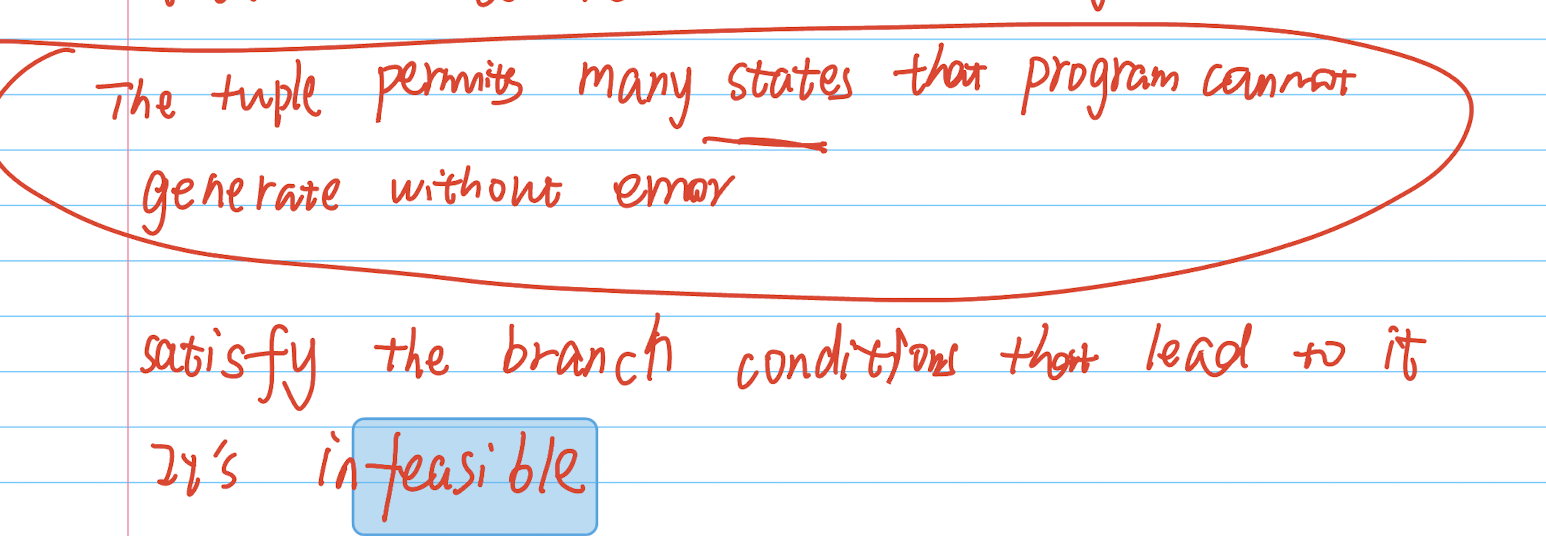 The tuple permits many states that program cannot
generate without error
satisfy the branch conditions that lead to it
It's infeasible